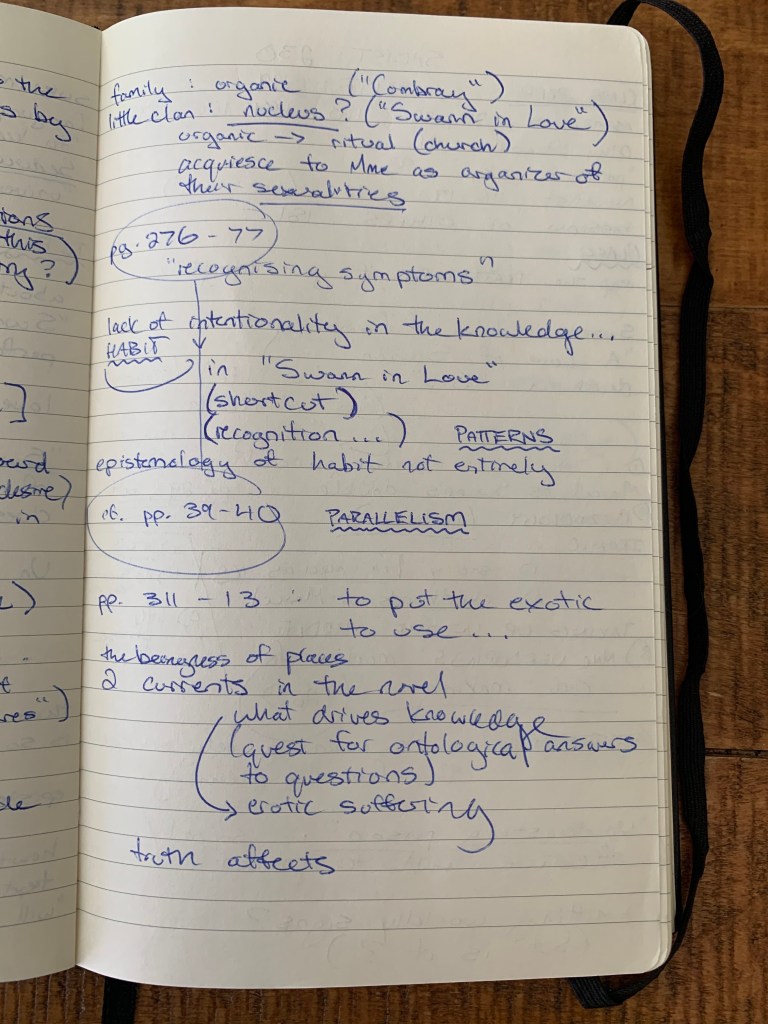 the
s by
tons
this
my?)
]
desire)
in
res")
family : organic ("Combray")
little clan : nucleus? ("Swann in Love")
organic → ritual (church)
acquiesce to Mme as organizer of
their sexualities
pg. 276 - 77
"recognising symptoms"
lack of intentionality in the knowledge...
HABIT
in "Swann in Love"
(shortcut)
(recognition...) PATTERNS
epistemology of habit not entirely
cf. pp. 39-40 PARALLELISM
pp. 311 - 13 to put the exotic
to use...
the beingness of places
2 currents in the novel
what drives knowledge
(quest for ontological answers
to questions)
→ erotic suffering
truth affects